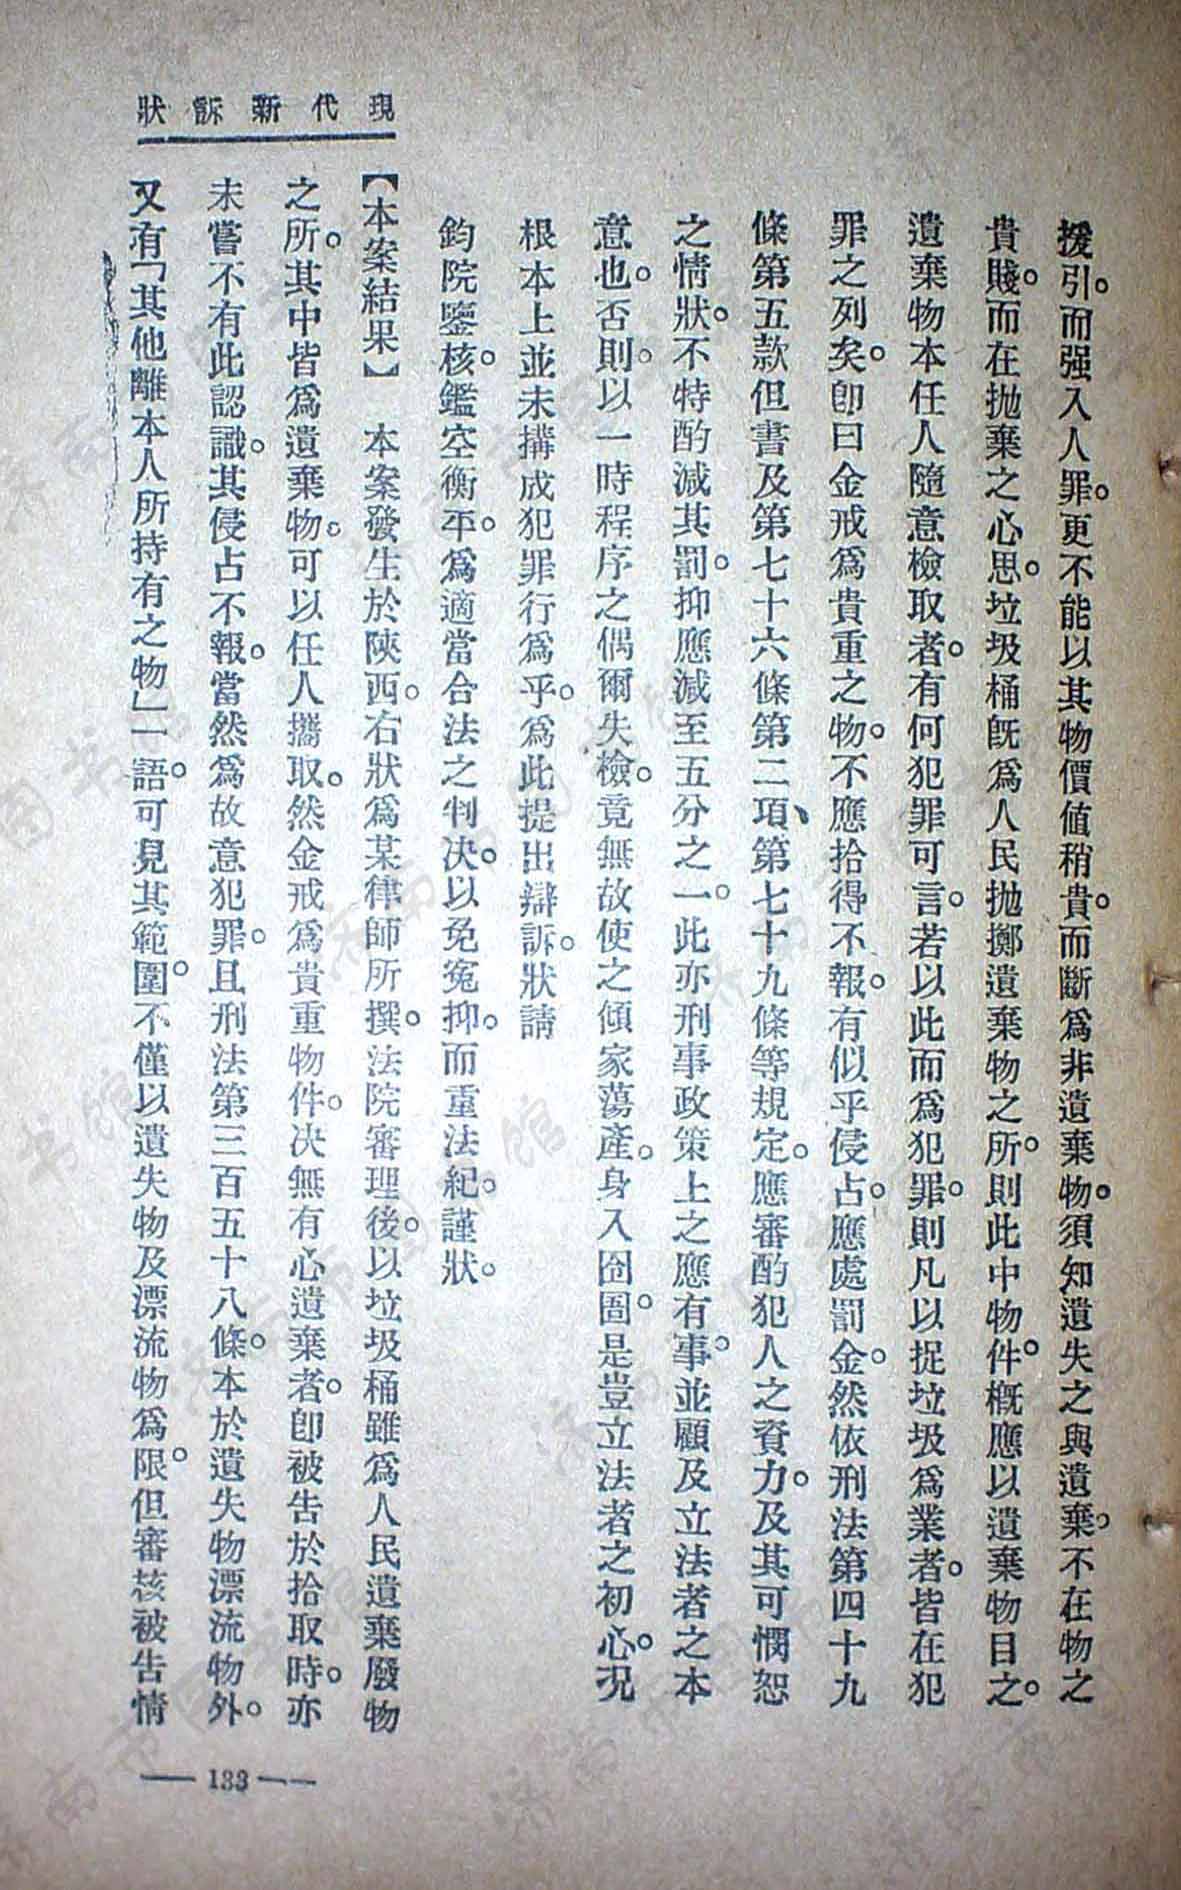 現代新訴狀
援引。而强入人罪。更不能以其物價値稍貴。而斷爲非遺棄物。須知遺失之與遺棄。不在物之
貴賤。而在抛棄之心思。垃圾桶旣爲人民抛擲遺棄物之所。則此中物件。槪應以遺棄物目之。
遺棄物本任人隨意檢取者。有何犯罪可言。若以此而爲犯罪。則凡以捉垃圾爲業者。皆在犯
罪之列矣。卽曰金戒爲貴重之物。不應拾得不報。有似乎侵占。應處罰金。然依刑法第四十九
條第五款但書及第七十六條第二項、第七十九條等規定。應審酌犯人之資力。及其可憫恕
之情狀。不特酌減其罰。抑應減至五分之一。此亦刑事政策上之應有事。並顧及立法者之本
意也。否則。以一時程序之偶爾失檢。竟無故使之傾家蕩產。身入囹圄。是豈立法者之初心。况
根本上並未搆成犯罪行爲乎。爲此提出辯訴。狀請
鈞院鑒核。鑑空衡平。爲適當合法之判决。以免寃抑。而重法紀。謹狀。
【本案結果】　本案發生於陝西。右狀爲某律師所撰。法院審理後。以垃圾桶雖爲人民遺棄廢物
之所。其中皆爲遺棄物。可以任人攜取。然金戒爲貴重物件。决無有心遺棄者。卽被告於拾取時。亦
未嘗不有此認識。其侵占不報。當然爲故意犯罪。且刑法第三百五十八條。本於遺失物漂流物外。
又有「其他離本人所持有之物」一語。可見其範圍。不僅以遺失物及漂流物爲限。但審核被告情
— 133 —